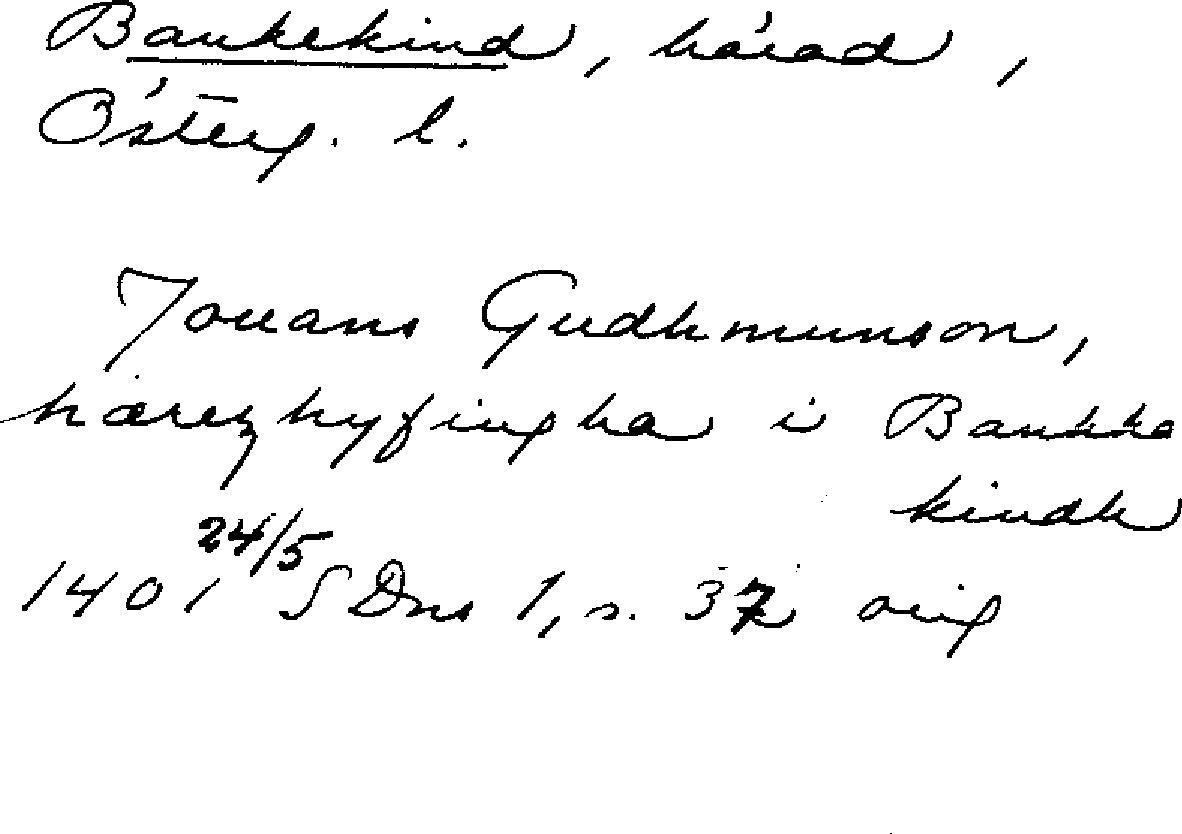 Bankekind, härad,
Österg. l.
Jouans Gudhmunson,
hærezhyfingha i Bankka
kindh
1401 24/5 SDns 1, s. 37 orig